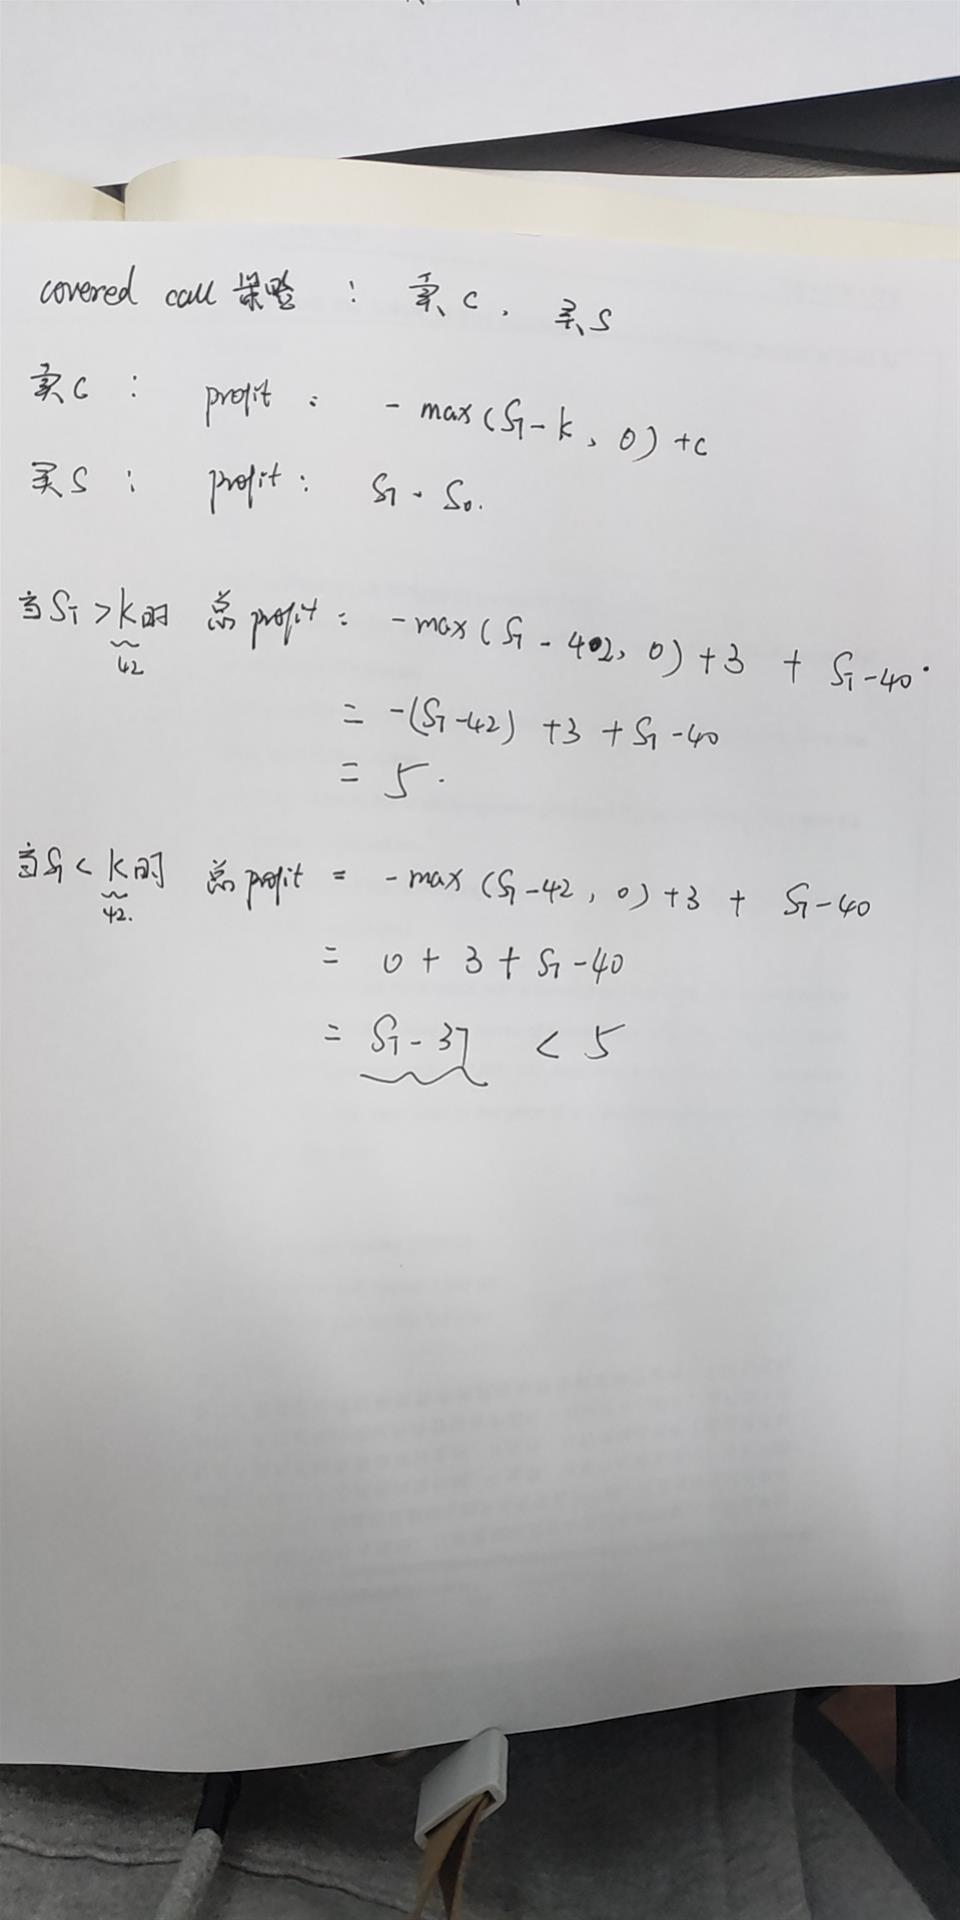 covered call 策略 : 卖 C , 买 S
卖 C : profit : - max (S_T - k , 0) + c
买 S : profit : S_T - S_0.
当 S_T > k 时 总 profit : - max ( S_T - 42, 0 ) + 3 + S_T - 40.
42
= -(S_T - 42) + 3 + S_T - 40
= 5 .
当 S_T < k 时 总 profit = - max (S_T - 42 , 0) + 3 + S_T - 40
42.
= 0 + 3 + S_T - 40
= S_T - 37 < 5